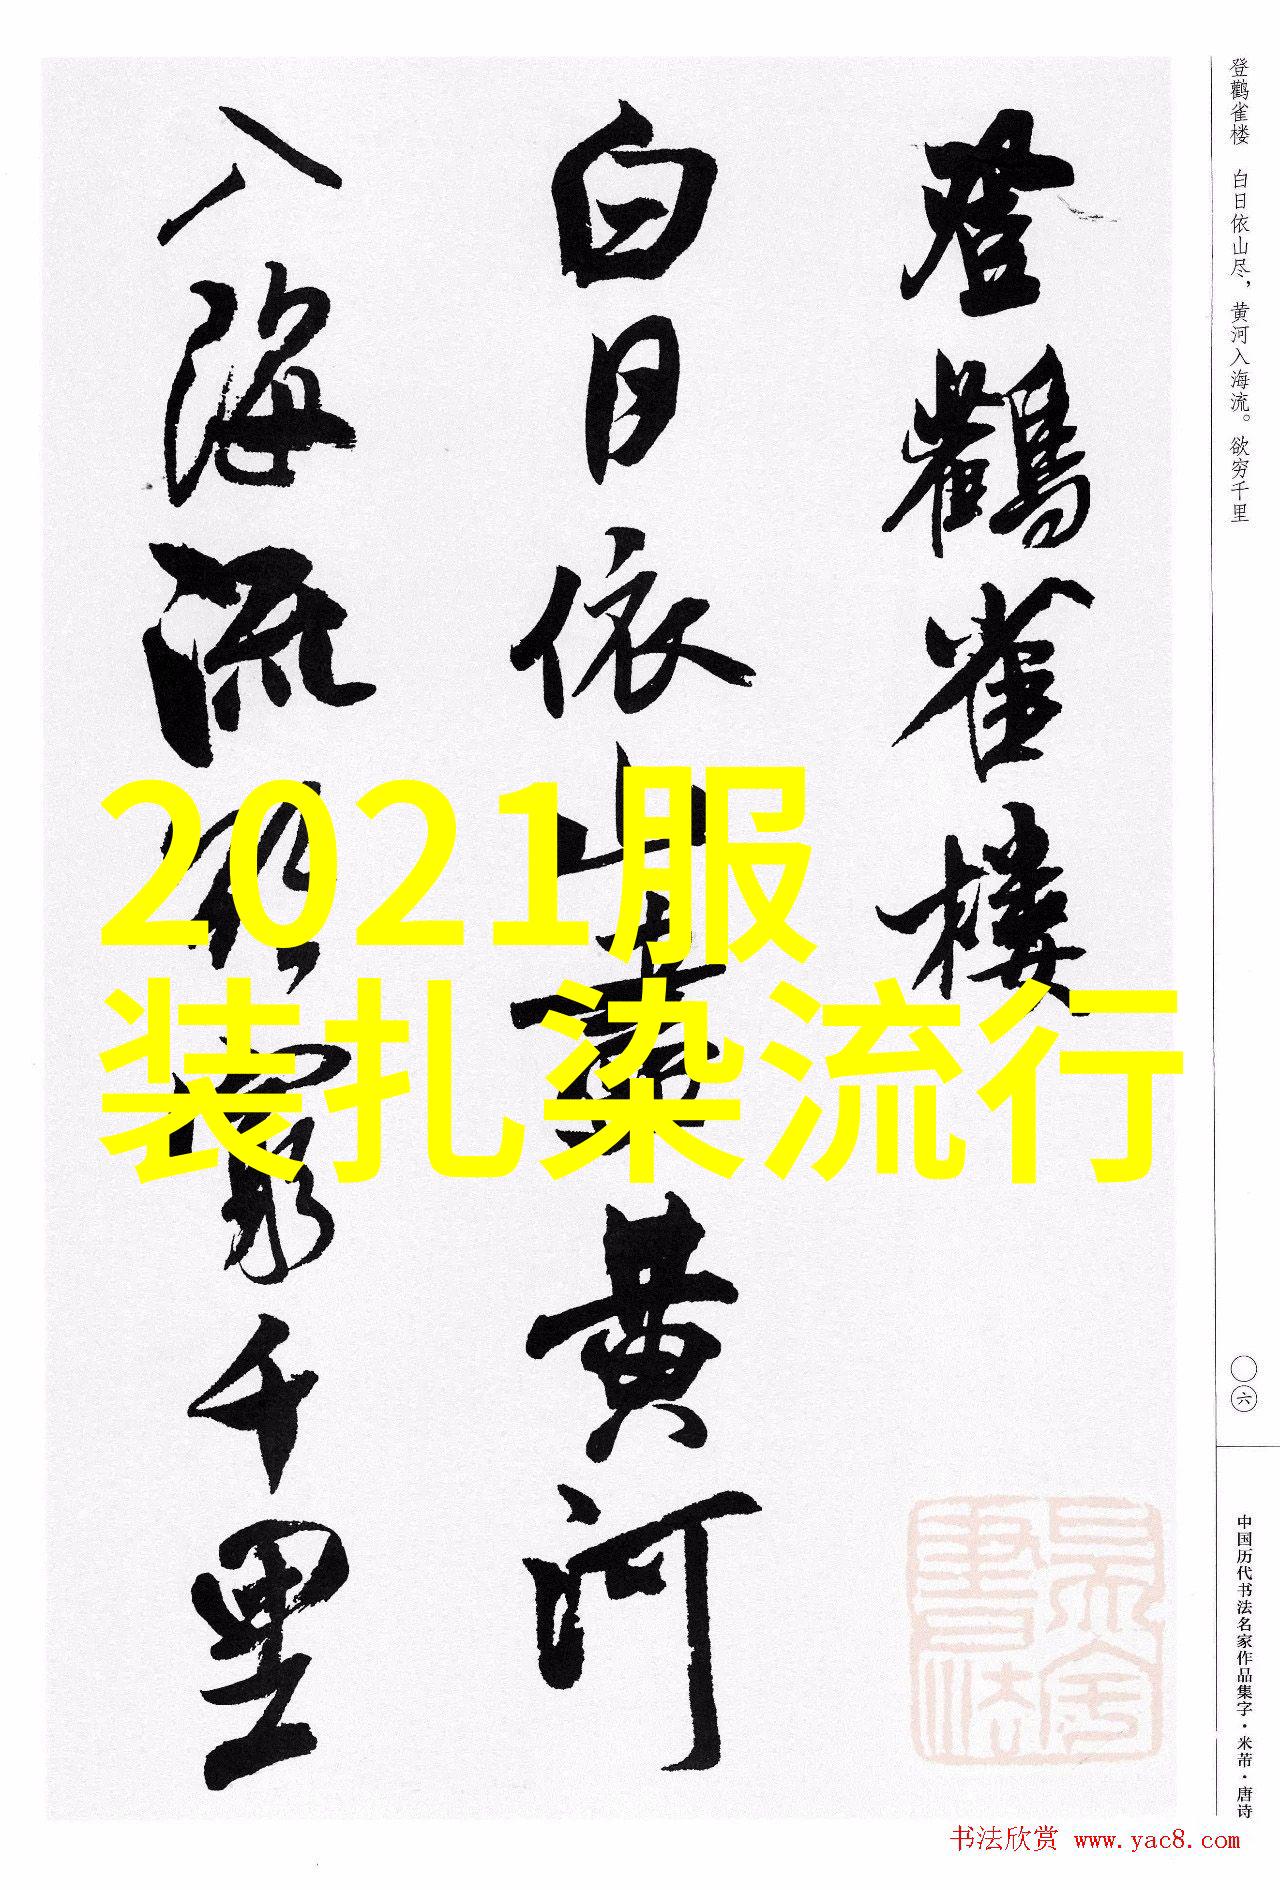 登鹳雀楼
白日依山尽黄河
入海流欲穷千里
2021服
装扎染流行
登鹳雀楼 白日依山尽，黄河入海流。欲穷千里
〇六
中国历代书法名家作品集字·米芾·唐诗
书法欣赏 www.yac8.com